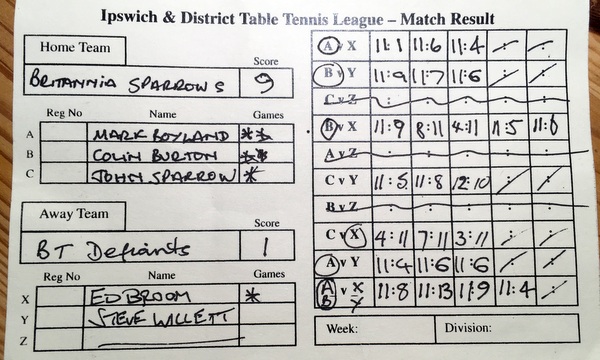 Ipswich & District Table Tennis League – Match Result
Home Team
Score
BRITANNIA SPARROWS 9
Reg No Name Games
A MARK BOYLAND **
B COLIN BURTON **
C JOHN SPARROW *
Away Team
Score
BT Defiants 1
Reg No Name Games
X ED BROOM *
Y STEVE WILLETT
Z
A v X 11:1 11:6 11:4 : :
B v Y 11:9 11:7 11:6 : :
C v Z : : : : :
B v X 11:9 8:11 4:11 11:5 11:6
A v Z : : : : :
C v Y 11:5 11:8 12:10 : :
B v Z : : : : :
C v X 4:11 7:11 3:11 : :
A v Y 11:4 11:6 11:6 : :
A B v X Y 11:8 11:13 11:9 11:4 :
Week: Division: